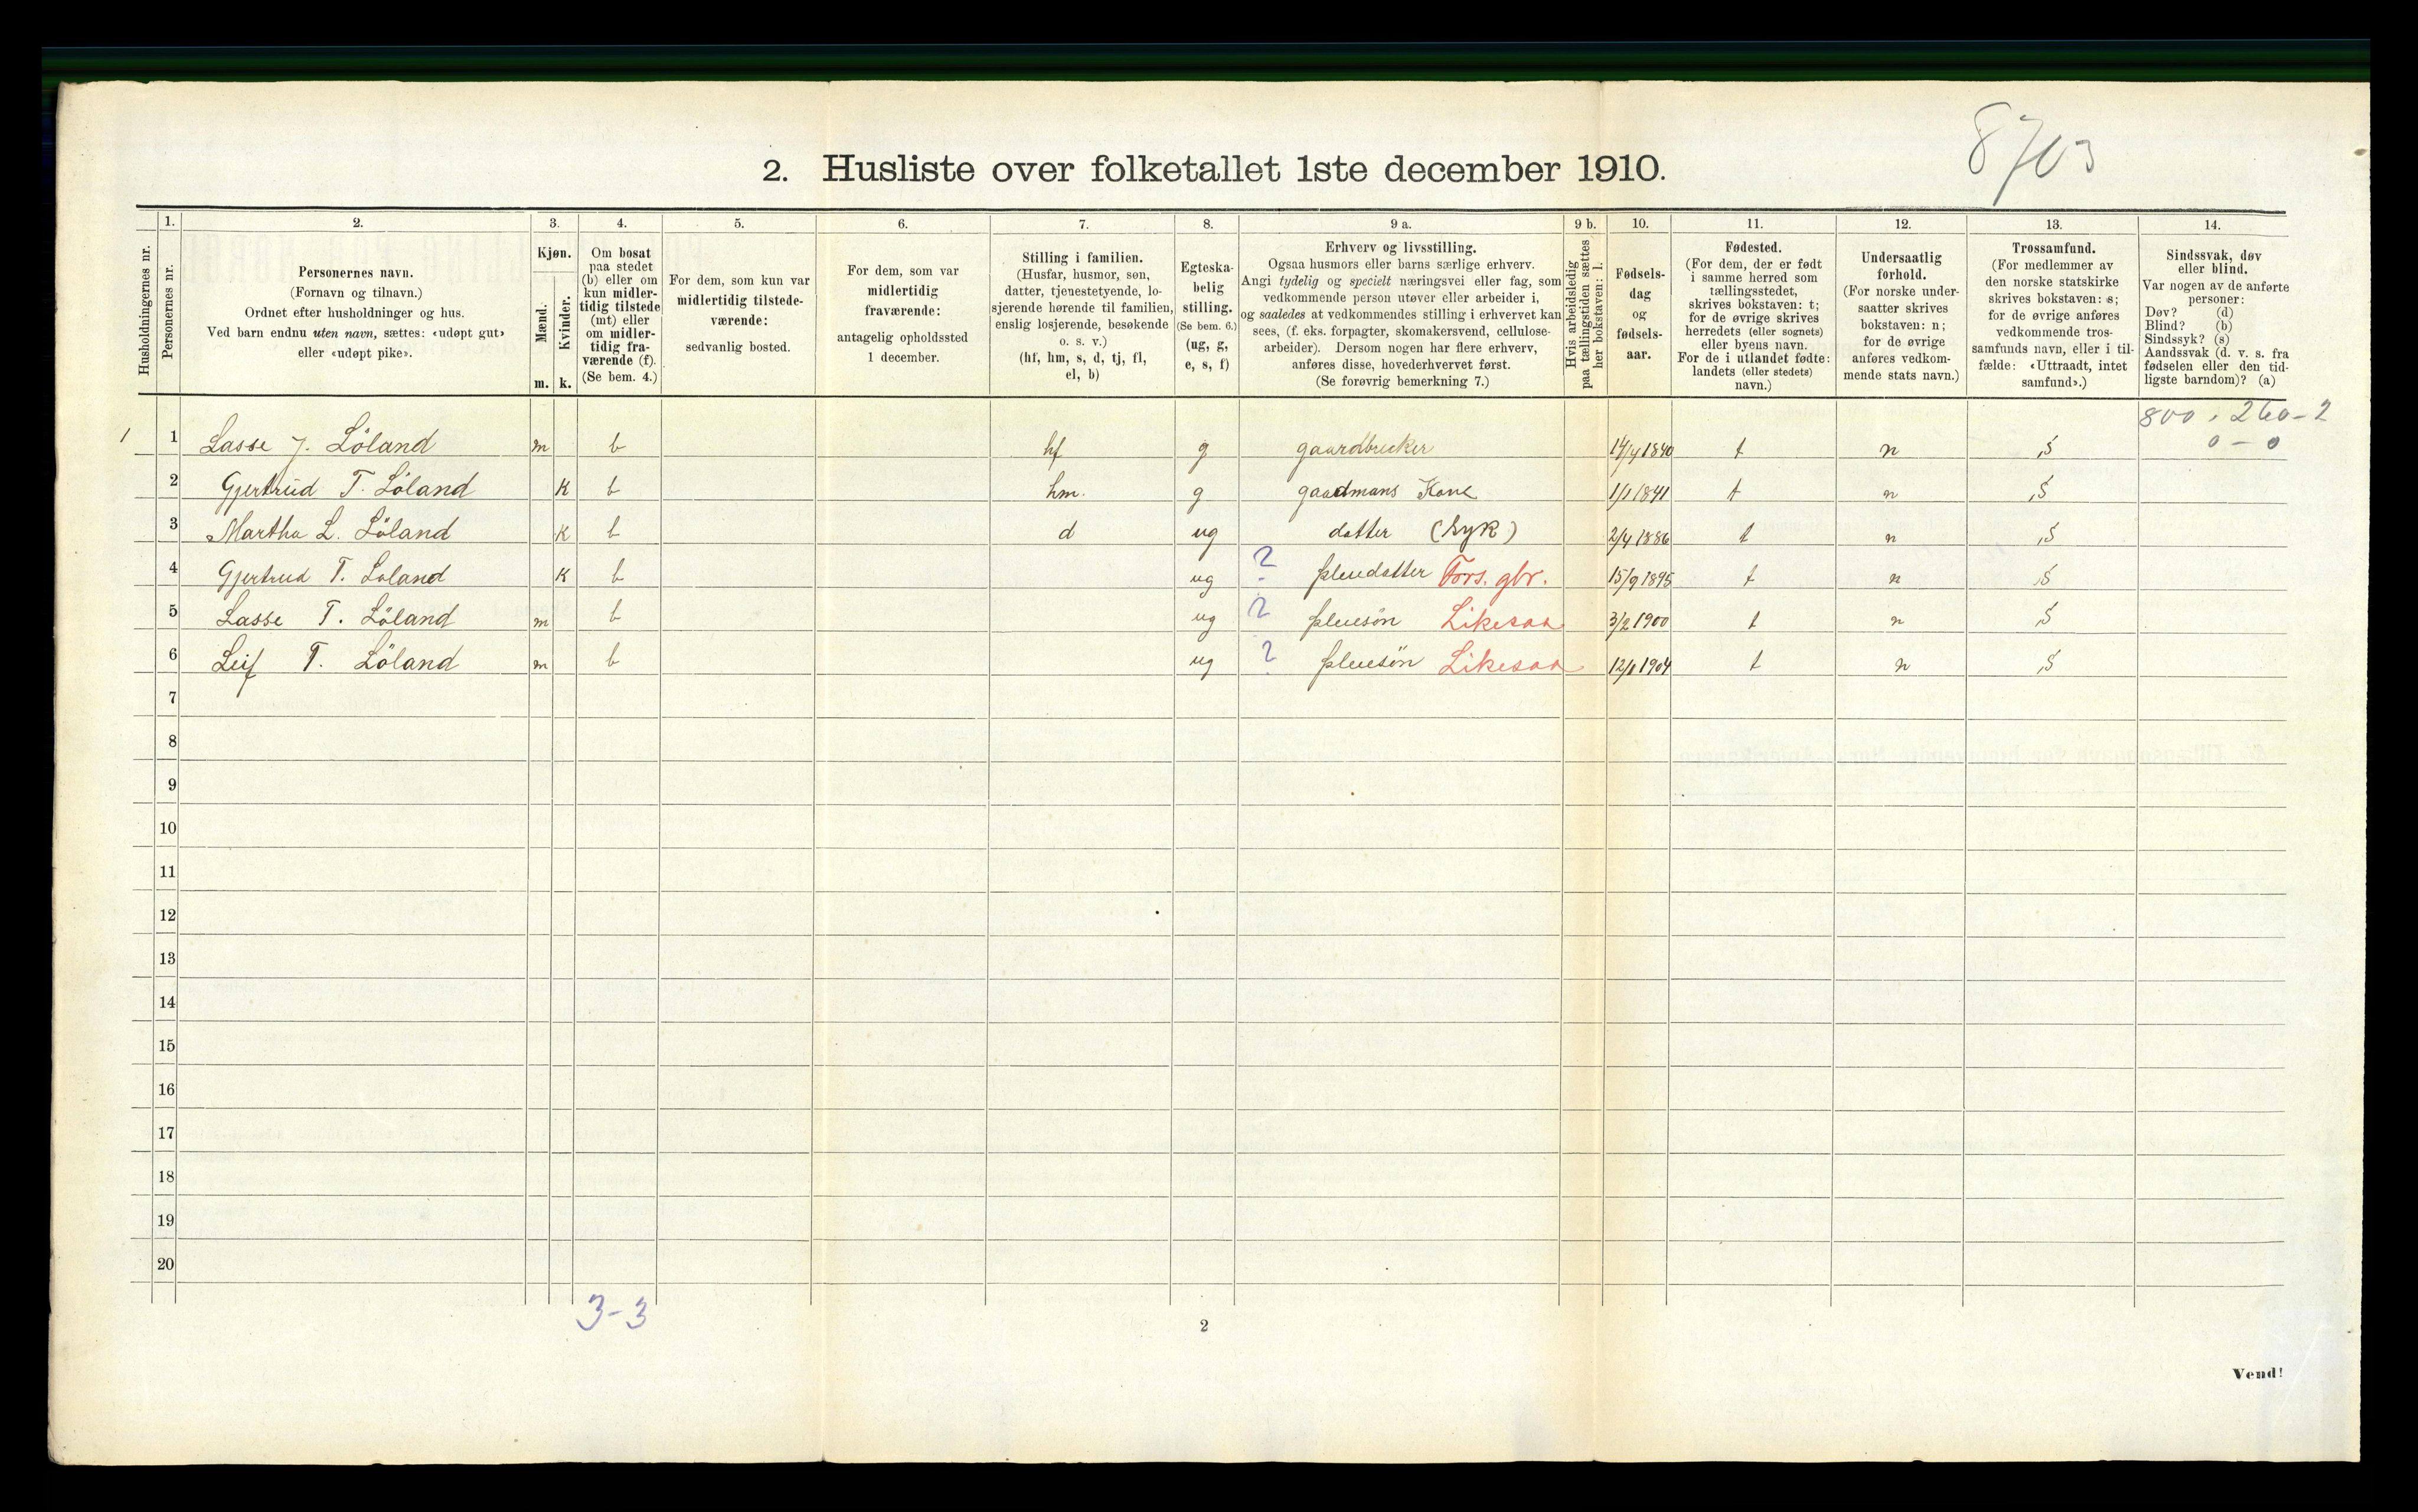 8703
2. Husliste over folketallet 1ste december 1910.
Husholdningernes nr.
1.
Personernes nr.
2.
Personernes navn.
(Fornavn og tilnavn.)
Ordnet efter husholdninger og hus.
Ved barn endnu uten navn, sættes: «udøpt gut»
eller «udøpt pike».
3.
Kjøn.
Mænd.
Kvinder.
m. k.
4.
Om bosat
paa stedet
(b) eller om
kun midler-
tidig tilstede
(mt) eller
om midler-
tidig fra-
værende (f).
(Se bem. 4.)
5.
For dem, som kun var
midlertidig tilstede-
værende:
sedvanlig bosted.
6.
For dem, som var
midlertidig
fraværende:
antagelig opholdssted
1 december.
7.
Stilling i familien.
(Husfar, husmor, søn,
datter, tjenestetyende, lo-
sjerende hørende til familien,
enslig losjerende, besøkende
o. s. v.)
(hf, hm, s, d, tj, fl,
el, b)
8.
Egteska-
belig
stilling.
(Se bem. 6.)
(ug, g,
e, s, f)
9 a.
Erhverv og livsstilling.
Ogsaa husmors eller barns særlige erhverv.
Angi tydelig og specielt næringsvei eller fag, som
vedkommende person utøver eller arbeider i,
og saaledes at vedkommendes stilling i erhvervet kan
sees, (f. eks. forpagter, skomakersvend, cellulose-
arbeider). Dersom nogen har flere erhverv,
anføres disse, hovederhvervet først.
(Se forøvrig bemerkning 7.)
9 b.
Hvis arbeidsledig
paa tællingstiden sættes
her bokstaven: l.
10.
Fødsels-
dag
og
fødsels-
aar.
11.
Fødested.
(For dem, der er født
i samme herred som
tællingsstedet,
skrives bokstaven: t;
for de øvrige skrives
herredets (eller sognets)
eller byens navn.
For de i utlandet fødte:
landets (eller stedets)
navn.)
12.
Undersaatlig
forhold.
(For norske under-
saatter skrives
bokstaven: n;
for de øvrige
anføres vedkom-
mende stats navn.)
13.
Trossamfund.
(For medlemmer av
den norske statskirke
skrives bokstaven: s;
for de øvrige anføres
vedkommende tros-
samfunds navn, eller i til-
fælde: «Uttraadt, intet
samfund».)
14.
Sindssvak, døv
eller blind.
Var nogen av de anførte
personer:
Døv? (d)
Blind? (b)
Sindssyk? (s)
Aandssvak (d. v. s. fra
fødselen eller den tid-
ligste barndom)? (a)
800 . 260 - 2
0 - 0
1 1 Lasse J. Löland m b hf g gaardbrucker 14/4 1840 t n S
2 Gjertrud T. Löland K b hm. g gaadmans Kone 1/1 1841 t n S
3 Martha L. Löland K b d ug datter (syk) 2/4 1886 t n S
4 Gjertrud T. Löland K b ug ? pleiedatter Fors. gbr. 15/9 1895 t n S
5 Lasse T. Löland m b ug ? pleiesön Likesaa 3/2 1900 t n S
6 Leif T. Löland m b ug ? pleiesön Likesaa 12/1 1904 t n S
7
8
9
10
11
12
13
14
15
16
17
18
19
20
3-3
2
Vend!